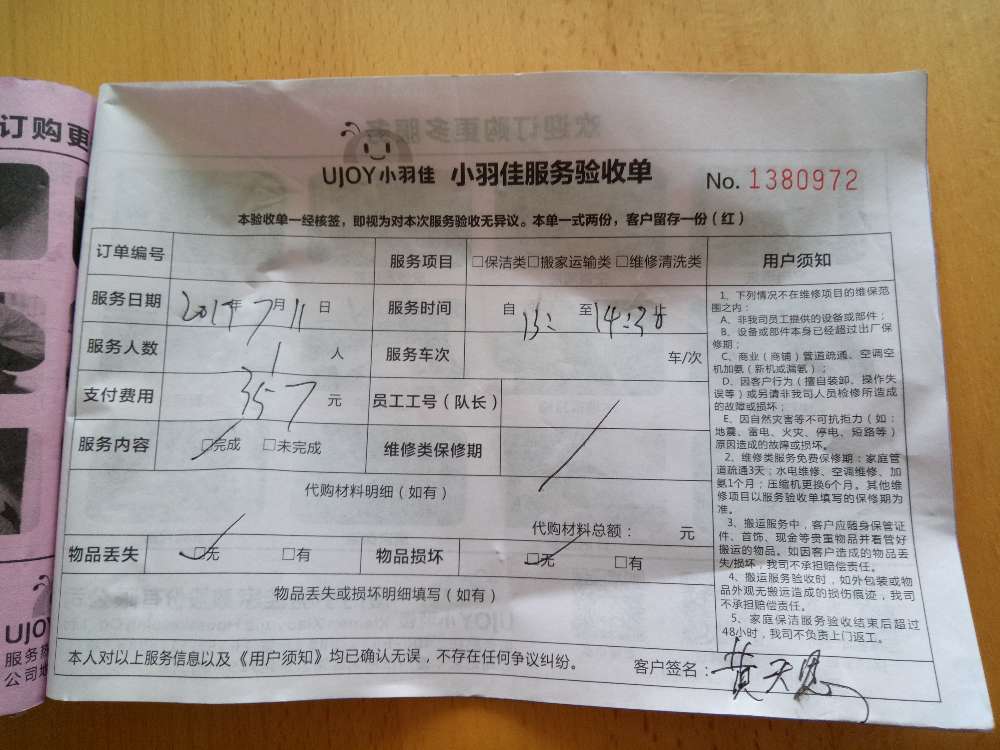 订购更
UJOY小羽佳 小羽佳服务验收单 No. 1380972
本验收单一经核签，即视为对本次服务验收无异议。本单一式两份，客户留存一份（红）
订单编号 服务项目 □保洁类□搬家运输类 □维修清洗类
服务日期 2017年7月11日 服务时间 自13: 至14:38
服务人数 1人 服务车次 车/次
支付费用 357元 员工工号（队长）
服务内容 □完成 □未完成 维修类保修期
代购材料明细（如有）
代购材料总额： 元
物品丢失 □无 □有 物品损坏 □无 □有
物品丢失或损坏明细填写（如有）
本人对以上服务信息以及《用户须知》均已确认无误，不存在任何争议纠纷。 客户签名：黄天恩
用户须知
1、下列情况不在维修项目的维保范
围之内：
A、非我司员工提供的设备或部件；
B、设备或部件本身已经超过出厂保
修期；
C、商业（商铺）管道疏通、空调空
机加氨（新机或漏氨）；
D、因客户行为（擅自装卸、操作失
误等）或另请非我司人员检修所造成
的故障或损坏；
E、因自然灾害等不可抗拒力（如：
地震、雷电、火灾、停电、短路等）
原因造成的故障或损坏。
2、维修类服务免费保修期：家庭管
道疏通3天；水电维修、空调维修、加
氨1个月；压缩机更换6个月。其他维
修项目以服务验收单填写的保修期为
准。
3、搬运服务中，客户应随身保管证
件、首饰、现金等贵重物品并看管好
搬运的物品。如因客户造成的物品丢
失/损坏，我司不承担赔偿责任。
4、搬运服务验收时，如外包装或物
品外观无搬运造成的损伤痕迹，我司
不承担赔偿责任。
5、家庭保洁服务验收结束后超过
48小时，我司不负责上门返工。
UJOY
服务热
公司地